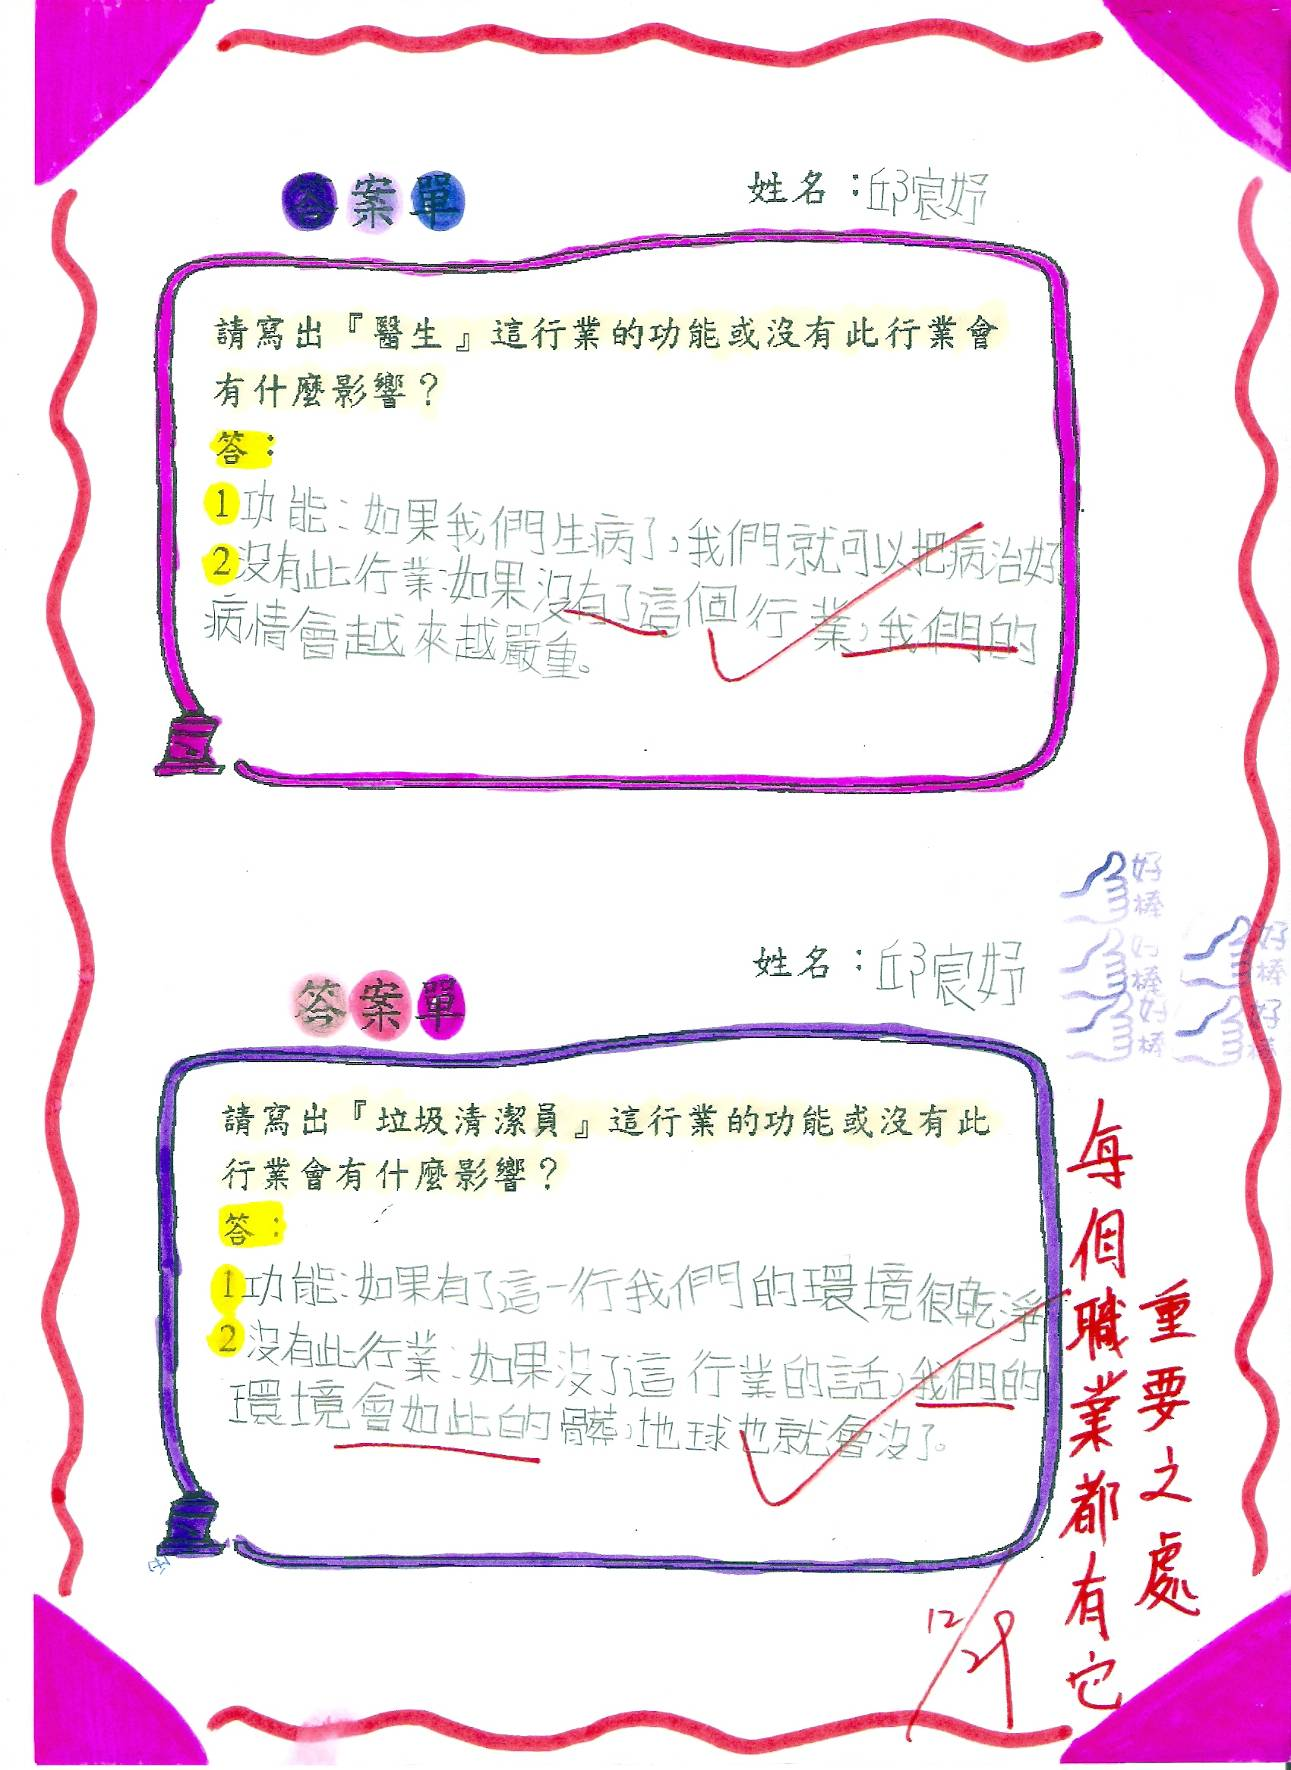 答案單
姓名：邱宸妤
請寫出『醫生』這行業的功能或沒有此行業會
有什麼影響？
答：
1功能：如果我們生病了，我們就可以把病治好
2沒有此行業：如果沒有了這個行業，我們的
病情會越來越嚴重。
好棒
好棒
好棒
好棒
好棒
答案單
姓名：邱宸妤
請寫出『垃圾清潔員』這行業的功能或沒有此
行業會有什麼影響？
答：
1功能：如果有了這一行我們的環境很乾淨
2沒有此行業：如果沒了這行業的話，我們的
環境會如此的髒，地球也就會沒了。
每個職業都有它
重要之處
12/29